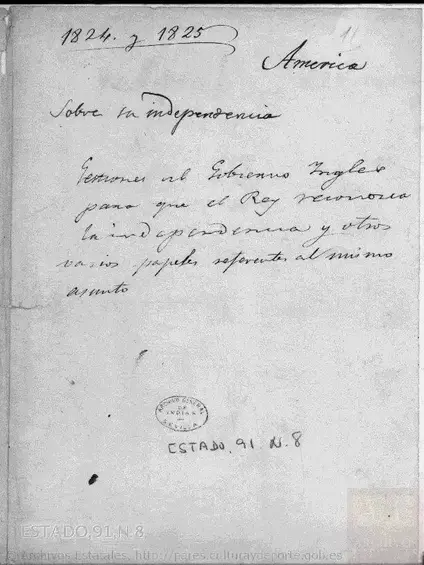 1824. y 1825
11
America
Sobre su independencia
Gestiones del Gobierno Ingles
para que el Rey reconozca
la independencia y otros
varios papeles referentes al mismo
asunto
ARCHIVO GENERAL
DE
INDIAS
SEVILLA
ESTADO, 91 N. 8
ESTADO,91,N.8
Archivos Estatales, http://pares.culturaydeporte.gob.es